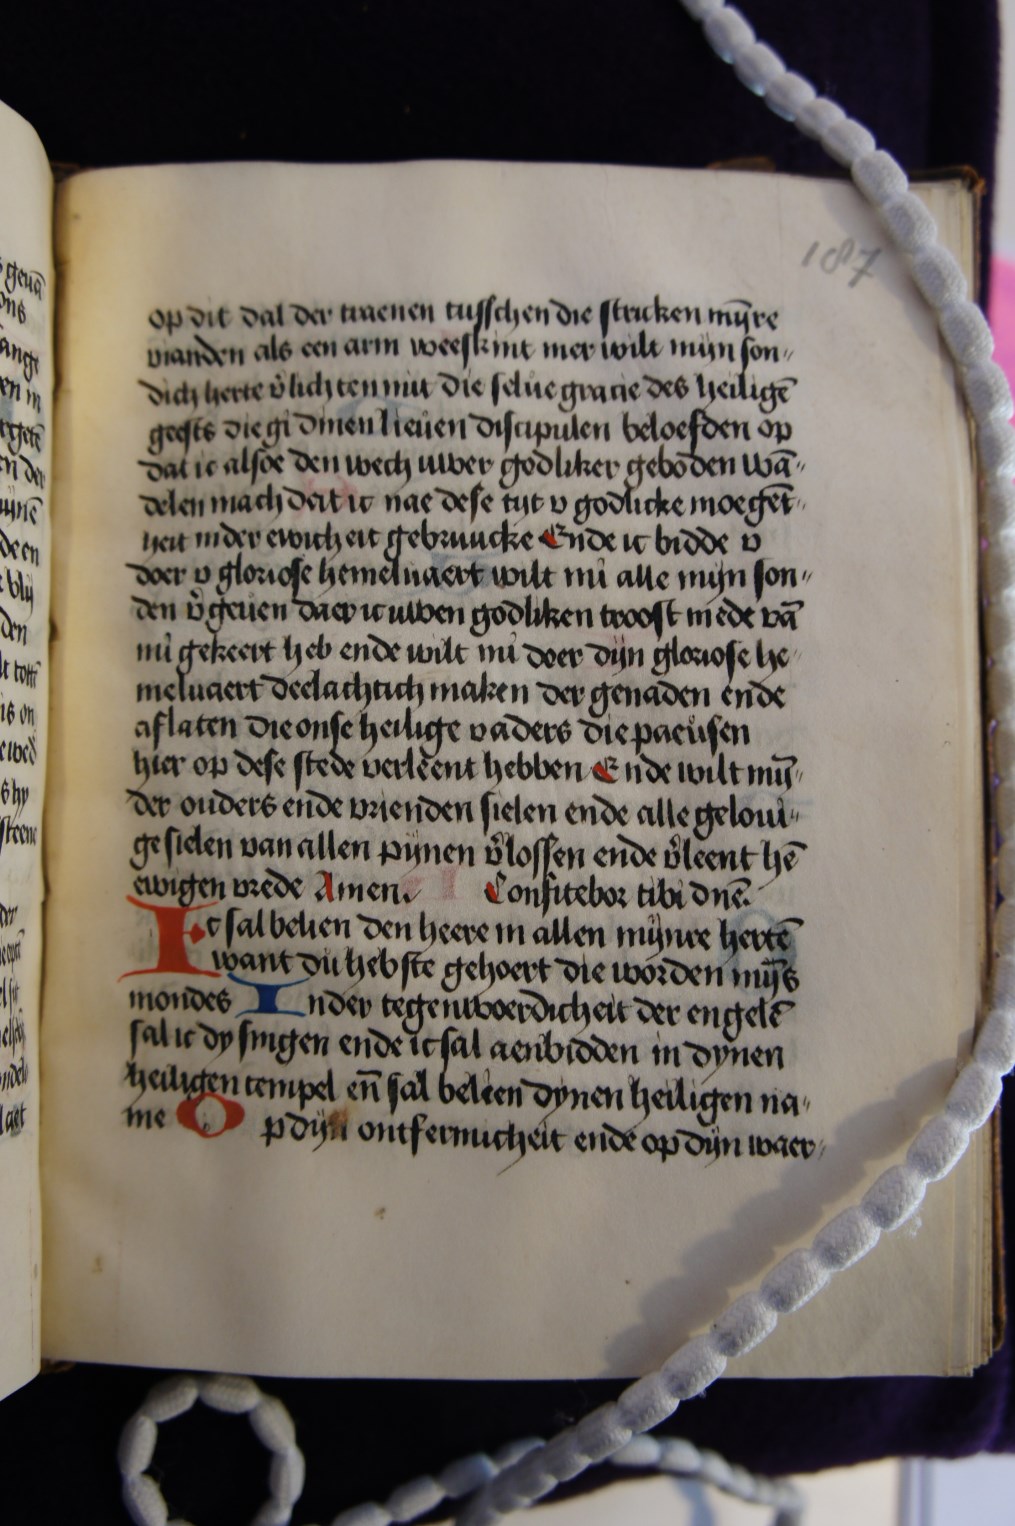 187
op dit dal der traenen tusschen die stricken mӯre
vianden als een arm weeskint mer wilt mijn son"
dich herte v̉lichten mit die selue gracie des heiligē
geests die gi dinen lieuen discipulen beloefden op
dat ic alsoe den wech uwer godliker geboden wā"
delen mach dat ic nae dese tyt v godlicke moegēt"
heit inder ewicheit gebruucke Ende ic bidde v
doer v gloriose hemeluaert wilt mi alle mijn son"
den v̉geuen daer ic uwen godliken troost mede vā
mi gekeert heb ende wilt mi doer dijn gloriose he"
meluaert deelachtich maken der genaden ende
aflaten die onse heilige vaders die paeusen
hier op dese stede verleent hebben Ende wilt mij̄"
der ouders ende vrienden sielen ende alle geloui"
ge sielen van allen pijnen v̉lossen ende v̉leent hē
ewigen vrede Amen. Confitebor tibi dnē.
Ic sal belien den heere in allen mijnre hertē
want du hebste gehoert die worden mij̄s
mondes Inder tegenwoerdicheit der engelē
sal ic dy singen ende ic sal aenbidden in dynen
heiligen tempel en̄ sal belien dynen heiligen na"
me Op dijn ontfermicheit ende op dijn waer"